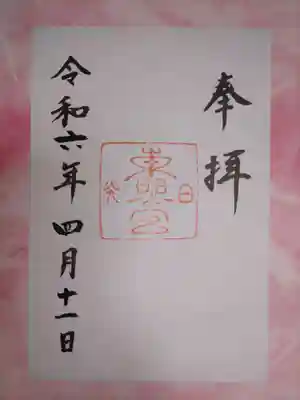 奉拝
東照宮
日光
令和六年四月十一日